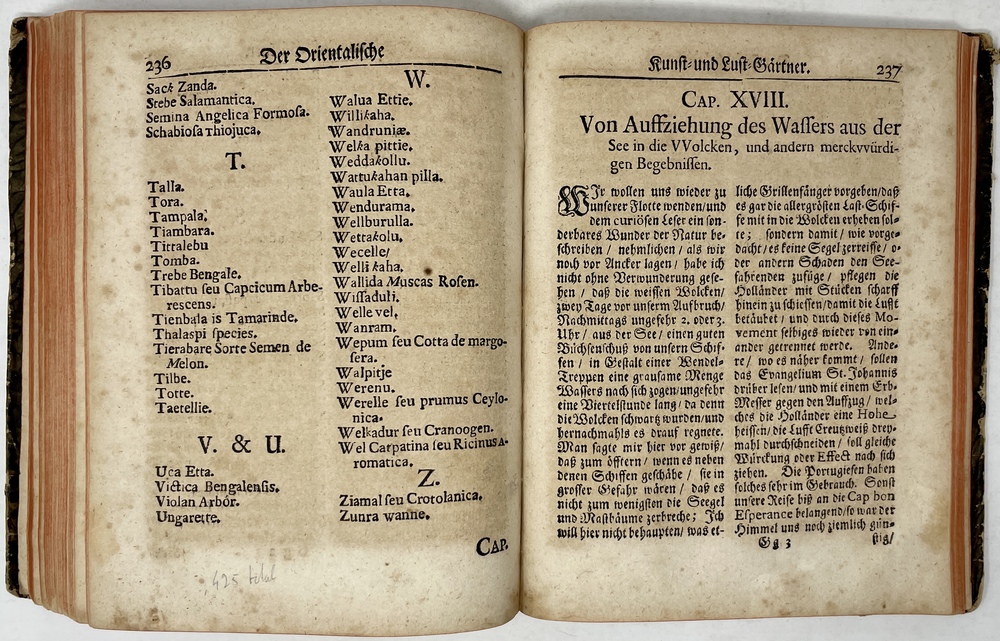 236
Der Orientalische
Sack Zanda.
Stebe Salamantica.
Semina Angelica Formosa.
Schabiosa rhiojuca.
T.
Talla.
Tora.
Tampala.
Tiambara.
Tittalebu
Tomba.
Trebe Bengale.
Tibattu seu Capcicum Arbe-
rescens.
Tienbala is Tamarinde.
Thalaspi species.
Tierabare Sorte Semen de
Melon.
Tilbe.
Totte.
Taetellie.
V. & U.
Uca Etta.
Victica Bengalensis.
Violan Arbór.
Ungarette.
W.
Walua Ettie.
Willikaha.
Wandruniæ.
Welka pittie.
Weddakollu.
Wattukahan pilla.
Waula Etta.
Wendurama.
Wellburulla.
Wettakolu.
Wecelle/
Welli kaha.
Wallida Muscas Rosen.
Wissaduli.
Welle vel.
Wanram.
Wepum seu Cotta de margo-
sera.
Walpitje
Werenu.
Werelle seu prumus Ceylo-
nica.
Welkadur seu Cranoogen.
Wel Carpatina seu Ricinus A-
romatica.
Z.
Ziamal seu Crotolanica.
Zunra wanne.
CAP.
425 total
Kunst- und Lust-Gärtner.
237
CAP. XVIII.
Von Auffziehung des Wassers aus der
See in die VVolcken, und andern merckvvürdi-
gen Begebnissen.
WIr wollen uns wieder zu
unserer Flotte wenden/und
dem curiösen Leser ein son-
derbares Wunder der Natur be-
schreiben / nehmlichen / als wir
noch vor Ancker lagen / habe ich
nicht ohne Verwunderung gese-
hen / daß die weissen Wolcken/
zwey Tage vor unserm Auffbruch/
Nachmittags ungefehr 2. oder 3.
Uhr / aus der See/ einen guten
Büchsenschuß von unsern Schif-
fen / in Gestalt einer Wendel-
Treppen eine grausame Menge
Wassers nach sich zogen/ungefehr
eine Viertelstunde lang/ da denn
die Wolcken schwartz wurden/und
hernachmahls es drauf regnete.
Man sagte mir hier vor gewiß/
daß zum öfftern / wenn es neben
denen Schiffen geschähe / sie in
grosser Gefahr wären / daß es
nicht zum wenigsten die Seegel
und Mastbäume zerbreche; Ich
will hier nicht behaupten/ was et-
liche Grillenfänger vorgeben/daß
es gar die allergrösten Last-Schif-
fe mit in die Wolcken erheben sol-
te; sondern damit / wie vorge-
dacht/ es keine Segel zerreisse/ o-
der andern Schaden den See-
fahrenden zufüge/ pflegen die
Holländer mit Stücken scharff
hinein zu schiessen/damit die Lufft
betäubet / und durch dieses Mo-
vement selbiges wieder von ein-
ander getrennet werde. Ande-
re/ wo es näher kommt/ sollen
das Evangelium St. Johannis
drüber lesen/ und mit einem Erb-
Messer gegen den Auffzug/ wel-
ches die Holländer eine Hohe
heissen/ die Lufft Creutzweiß drey-
mahl durchschneiden / soll gleiche
Würckung oder Effect nach sich
ziehen. Die Portugiesen haben
solches sehr im Gebrauch. Sonst
unsere Reise biß an die Cap bon
Esperance belangend/so war der
Himmel uns noch ziemlich gün-
Gg 3
stig/